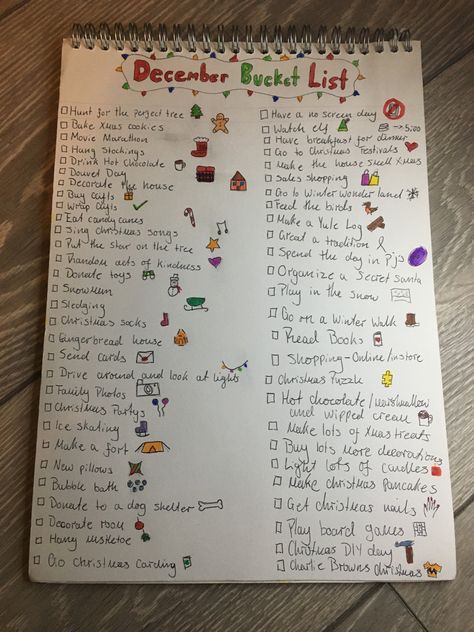 December Bucket List
Hunt for the perfect tree
Bake Xmas cookies
Movie Marathons
Hang Stockings
Drink Hot Chocolate
Douvet Day
Decorate the house
Buy Gifts
Wrap Gifts
Eat candycanes
Sing christmas songs
Put the star on the tree
Random acts of kindness
Donate toys
Snowmen
Sledging
Christmas socks
Gingerbread house
Send cards
Drive around and look at lights
Family Photos
Christmas Partys
Ice skating
Make a fort
New pillows
Bubble bath
Donate to a dog shelter
Decorate room
Hang mistletoe
Go Christmas Carding
Have a no screen day
Watch elf
Have breakfast for dinner
Go to Christmas Festivals
Make the house smell Xmas
Sales shopping
Go to Winter wonderland
Feed the birds
Make a Yule Log
Creat a tradition
Spend the day in Pjs
Organize a Secret santa
Play in the snow
Go on a Winter Walk
Read Books
Shopping-Online/instore
Christmas Puzzle
Hot chocolate/
and wipped cream
Make lots of Xmas treats
Buy lots more decorations
Light lots of candles
Make christmas pancakes
Get christmas nails
Play board games
Christmas DIY day
Charlie Browns christmas